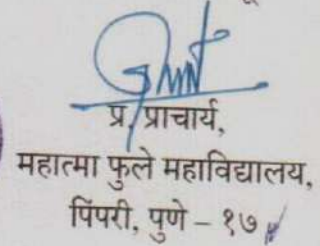 प्र. प्राचार्य,
महात्मा फुले महाविद्यालय,
पिंपरी, पुणे – १७